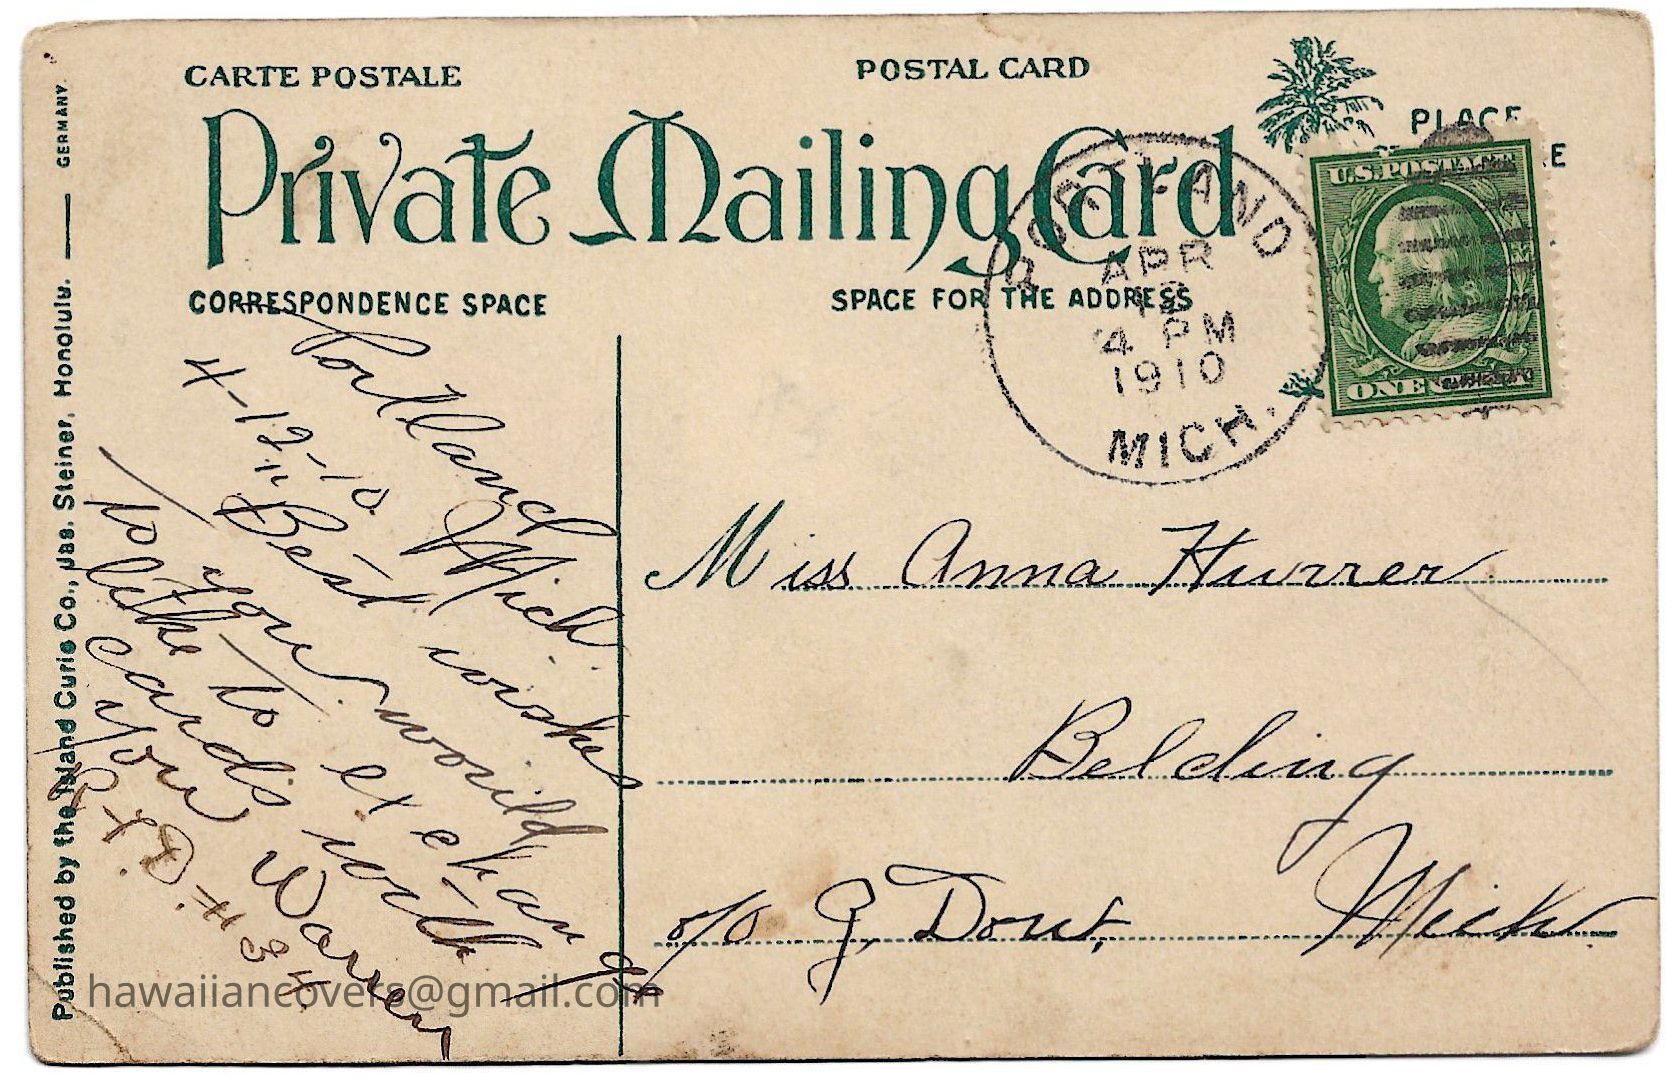 CARTE POSTALE
POSTAL CARD
Private Mailing Card
PLACE
CORRESPONDENCE SPACE
SPACE FOR THE ADDRESS
PORTLAND
APR
12
4 PM
1910
MICH.
U.S. POSTAGE
ONE CENT
Portland
Mich.
4-12-10.
"Best wishes
to you would
like to exchange
cards with
you Warren
Miss Anna Hurrer
Belding
c/o G, Dout, Mich.
Published by the Island Curio Co., Jas. Steiner, Honolulu. — GERMANY.
hawaiiancovers@gmail.com